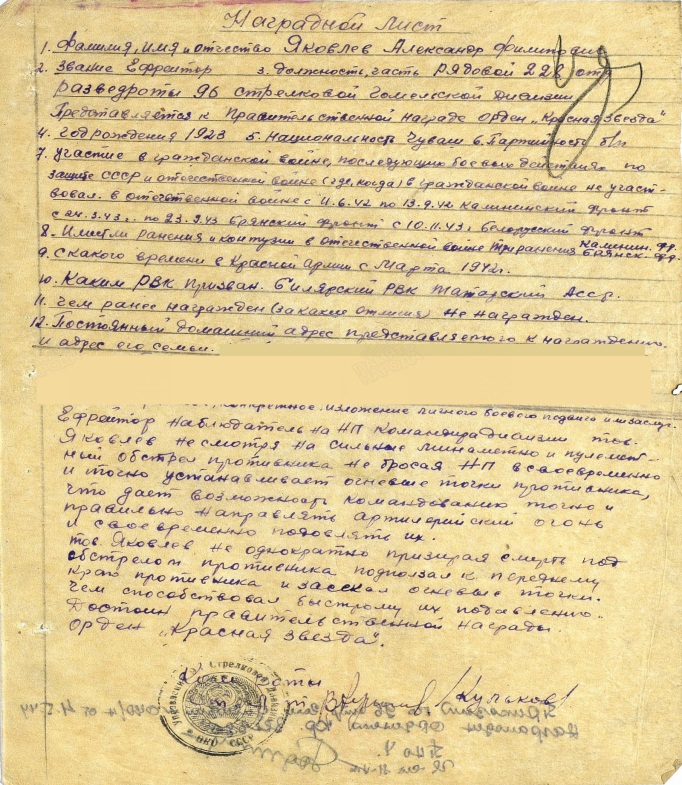 Наградной лист
1. Фамилия, имя и отчество Яковлев Александр Филиппович
2. Звание Ефрейтор 3. должность, часть Рядовой 228 отд
разведроты 96 стрелковой Гомельской Дивизии
Представляется к Правительственной награде орден „Красная Звезда"
4. Год рождения 1923 5. Национальность Чуваш 6. Партийность б/п
7. Участие в гражданской войне, последующих боевых действиях по
защите СССР и отечественной войне (где, когда) в гражданской войне не участ-
вовал. в отечественной войне с 11.6.42 по 13.9.42 Калининский фронт
с 24.3.43 г. по 23.9.43 Брянский фронт с 10.11.43 г. Белорусский фронт
8. Имеет ли ранения и контузии в отечественной войне Три ранения Калинин. фр.
Брянск. фр.
9. С какого времени в Красной Армии с Марта 1942 г.
10. Каким РВК призван. Билярский РВК Татарский Асср.
11. Чем ранее награжден (за какие отличия) Не награжден.
12. Постоянный домашний адрес представляемого к награждению
и адрес его семьи.
конкретное изложение личного боевого подвига или заслуг.
Ефрейтор наблюдатель на НП командира дивизии тов.
Яковлев несмотря на сильные минаметно и пулемет-
ный обстрел противника не бросая НП в своевременно
и точно устанавливает огневые точки противника,
что дает возможность командованию точно и
правильно направлять артилерийский огонь
и своевременно подовлять их.
тов. Яковлев не однократно призирая смерть под
обстрелом противника подползал к переднему
краю противника и засекал огневые точки.
Чем способствовал быстрому их подавлению.
Достоин правительственной награды.
орден „Красная Звезда".
/Кульков/